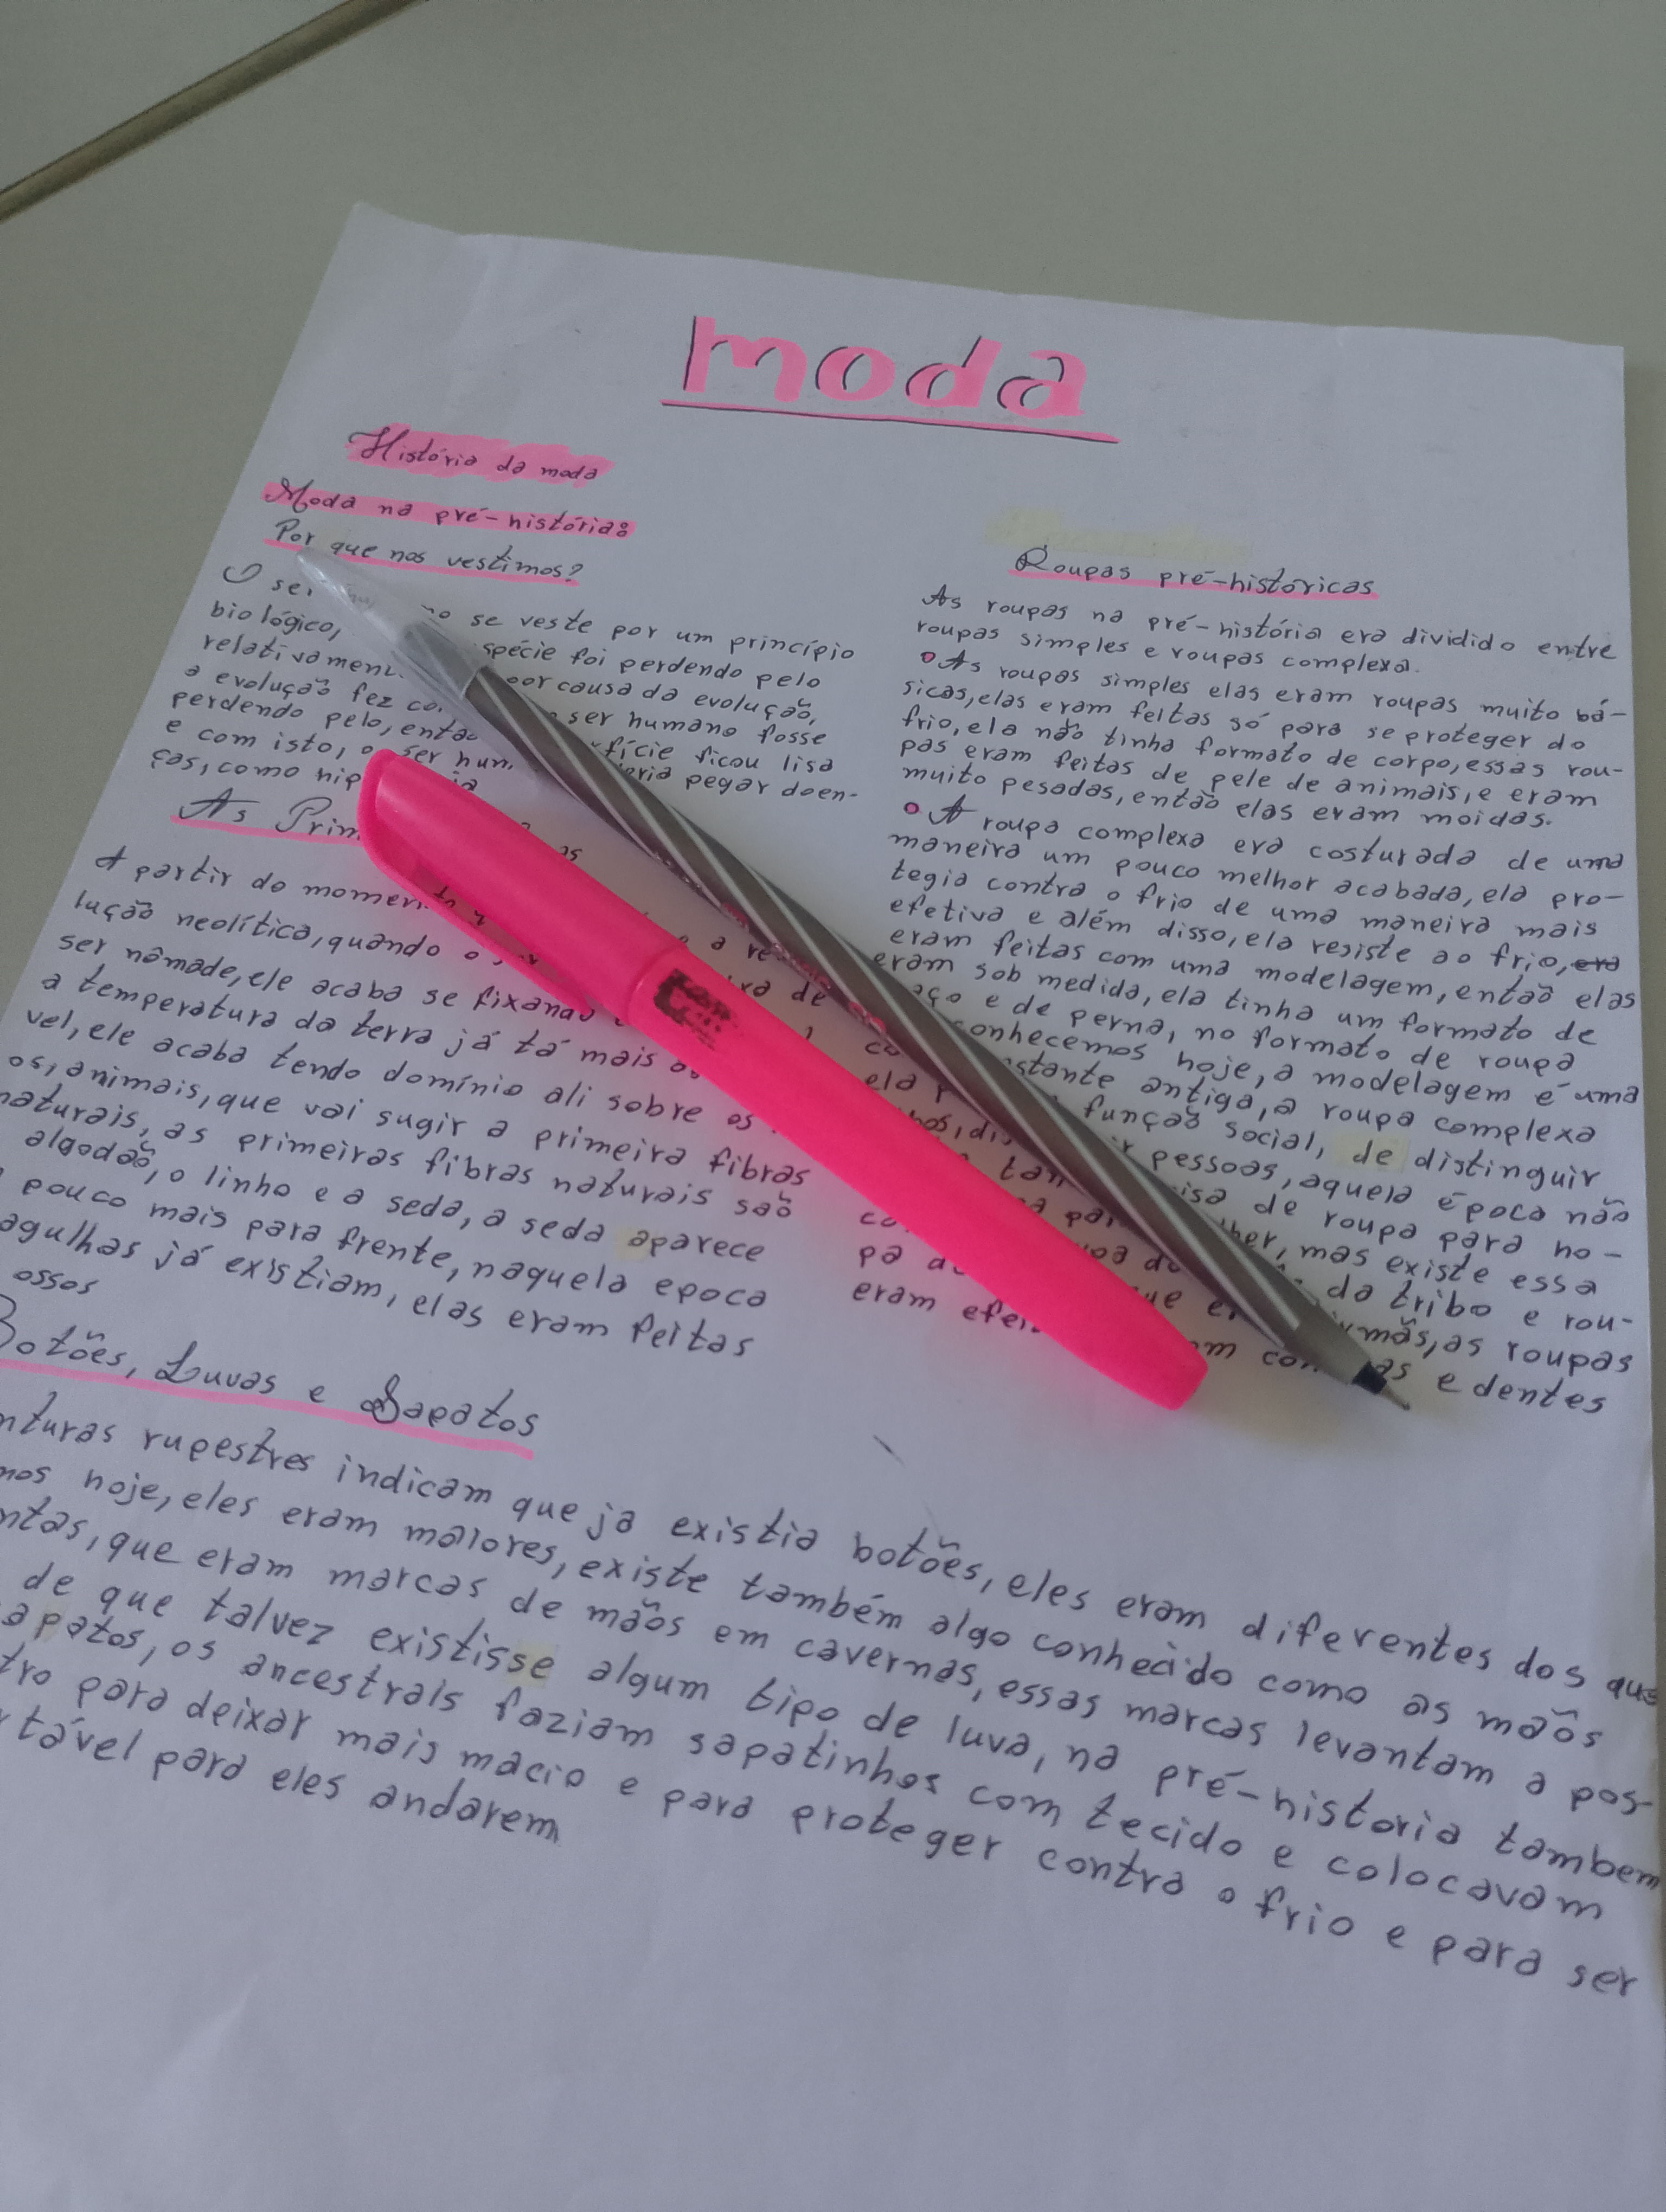 moda
História da moda
Moda na pré-história:
Por que nos vestimos?
O se se veste por um princípio
biológico, spécie foi perdendo pelo
relativamen por causa da evolução,
a evolução fez co ser humano fosse
perdendo pelo, então fície ficou lisa
e com isto, o ser hum eria pegar doen-
ças, como hip ia
As Prim as
A partir do momento a re
lução neolítica, quando o ira de
ser nômade, ele acaba se fixand
a temperatura da terra já tá mais
vel, ele acaba tendo domínio ali sobre os
os, animais, que vai sugir a primeira fibras
naturais, as primeiras fibras naturais saõ
algodaõ, o linho e a seda, a seda aparece
pouco mais para frente, naquela epoca
agulhas já existiam, elas eram feitas
ossos
Roupas pré-históricas
As roupas na pré-história era dividido entre
roupas simples e roupas complexa.
As roupas simples elas eram roupas muito bá-
sicas, elas eram feitas só para se proteger do
frio, ela não tinha formato de corpo, essas rou-
pas eram feitas de pele de animais, e eram
muito pesadas, então elas eram moidas.
A roupa complexa era costurada de uma
maneira um pouco melhor acabada, ela pro-
tegia contra o frio de uma maneira mais
efetiva e além disso, ela resiste ao frio, era
eram feitas com uma modelagem, então elas
eram sob medida, ela tinha um formato de
aço e de perna, no formato de roupa
co onhecemos hoje, a modelagem é uma
ela p stante antiga, a roupa complexa
função social, de distinguir
pessoas, aquela época não
isa de roupa para ho-
her, mas existe essa
pa da tribo e rou-
mãs, as roupas
eram efei m con as e dentes
Botões, Luvas e Sapatos
nturas rupestres indicam que ja existia botões, eles eram diferentes dos que
mos hoje, eles eram maiores, existe também algo conhecido como as maõs
ntas, que eram marcas de mãos em cavernas, essas marcas levantam a pos-
de que talvez existisse algum tipo de luva, na pré-historia tambem
apatos, os ancestrais faziam sapatinhos com tecido e colocavam
tro para deixar mais macio e para proteger contra o frio e para ser
tável para eles andarem